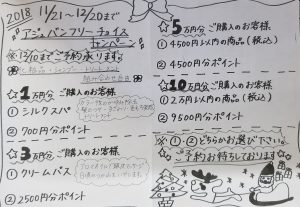 2018 11/21〜12/20まで
アジュバンフリーチョイス
キャンペーン
※12/10までご予約承ります。
化粧品・シャンプー・トリートメント
組み合わせ自由
☆1万円分 ご購入のお客様
① シルクスパ
② 700円分ポイント
☆3万円分 ご購入のお客様
① クリームバス
② 2500円分ポイント
☆5万円分 ご購入のお客様
① 4500円以内の商品(税込)
② 4500円分ポイント
☆10万円分 ご購入のお客様
① 2万円以内の商品(税込)
② 9500円分ポイント
①・②どちらかお選び下さい。
ご予約お待ちしております